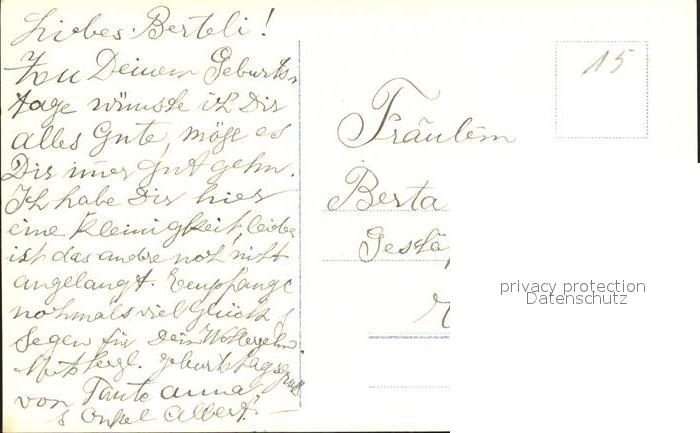 Liebes Berteli!
Zu Deinem Geburts-
tage wünsche ich Dir
alles Gute, möge es
Dir imer gut gehn.
Ich habe Dir hier
eine Kleinigkeit, leider
ist das andre noch nicht
angelangt. Empfange
nochmals viel Glück &
Segen für Dein Wohlergehn
Mit herzl. Geburtstagsgruß
von Tante Anna
& Onkel Albert.
15
Fräulein
Berta
privacy protection
Datenschutz